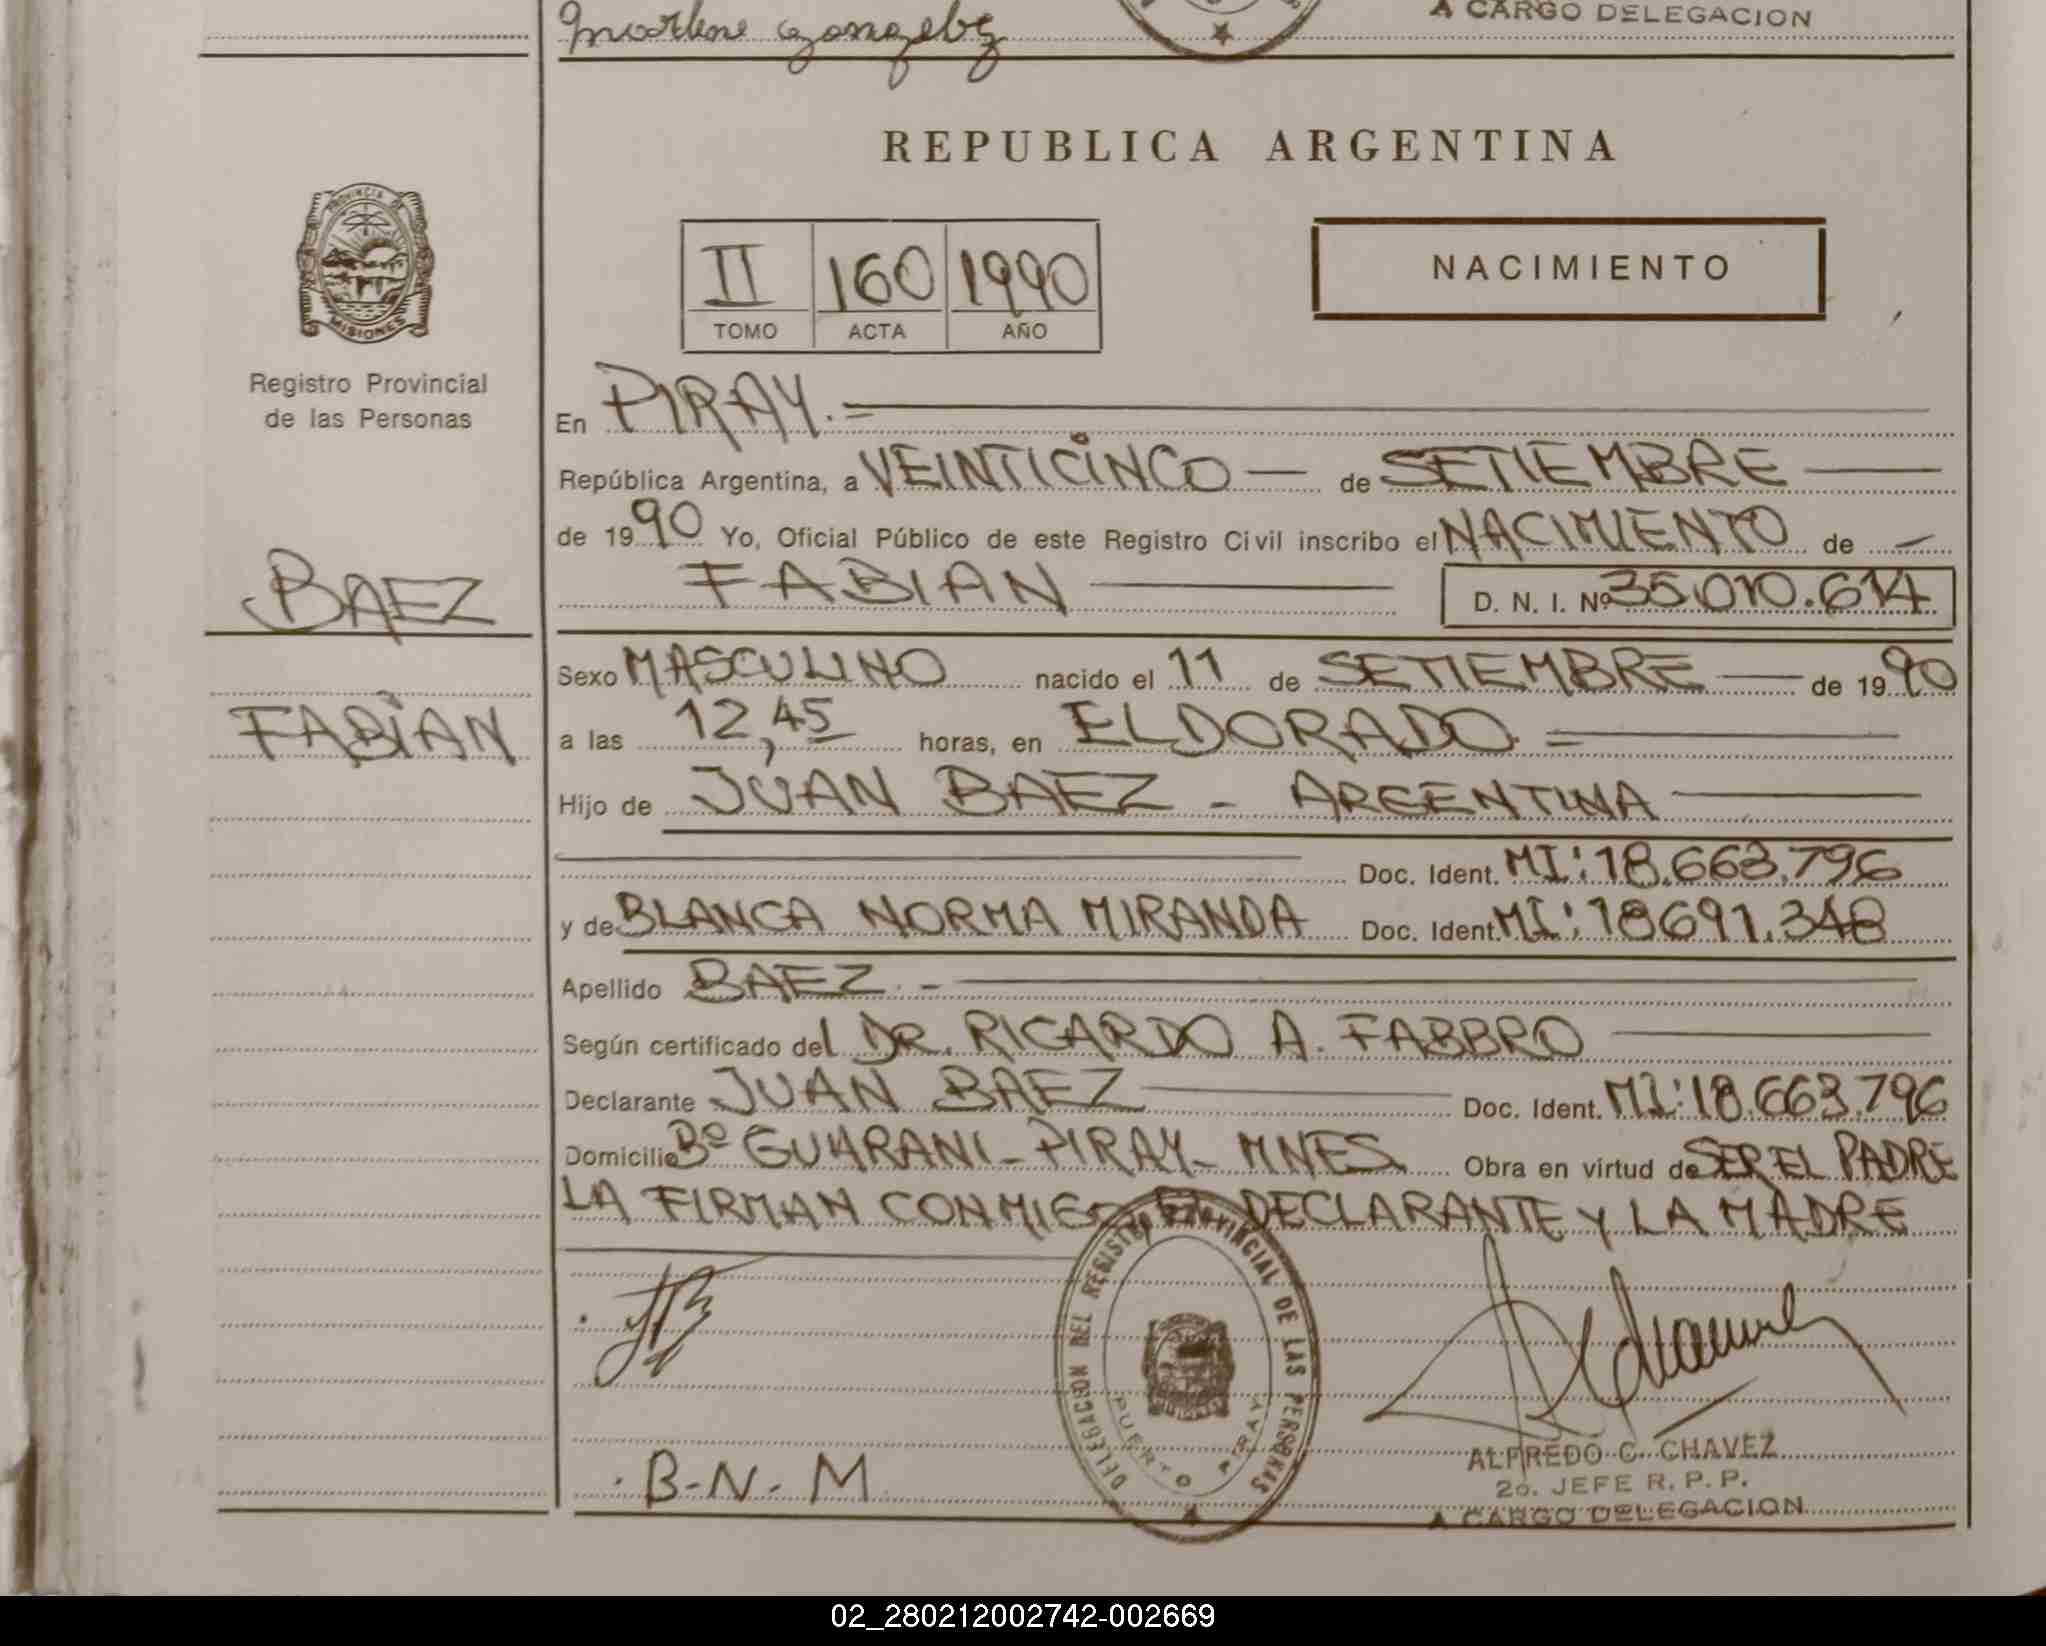 Marlene Gonzalez
A CARGO DELEGACION
REPUBLICA ARGENTINA
PROVINCIA DE
MISIONES
II 160 1990
TOMO ACTA AÑO
NACIMIENTO
Registro Provincial
de las Personas
En PIRAY.=
República Argentina, a VEINTICINCO — de SETIEMBRE —
de 1990 Yo, Oficial Público de este Registro Civil inscribo el NACIMIENTO de —
BAEZ
FABIAN — D. N. I. Nº 35.010.614
Sexo MASCULINO nacido el 11 de SETIEMBRE — de 1990
FABIAN
a las 12,45 horas, en ELDORADO. =
Hijo de JUAN BAEZ - ARGENTINA —
Doc. Ident. MI: 18.663.796
y de BLANCA NORMA MIRANDA Doc. Ident. MI: 18691.348
Apellido BAEZ. -
Según certificado del DR. RICARDO A. FABBRO —
Declarante JUAN BAEZ — Doc. Ident. MI: 18.663.796
Domicilio Bº GUARANI - PIRAY - MNES. Obra en virtud de SER EL PADRE
LA FIRMAN CONMIGO EL DECLARANTE Y LA MADRE
DELEGACION DEL REGISTRO PROVINCIAL DE LAS PERSONAS
PUERTO PIRAY
MISIONES
JB
ALFREDO C. CHAVEZ
B-N-M
2o. JEFE R. P. P.
A CARGO DELEGACION
02_280212002742-002669